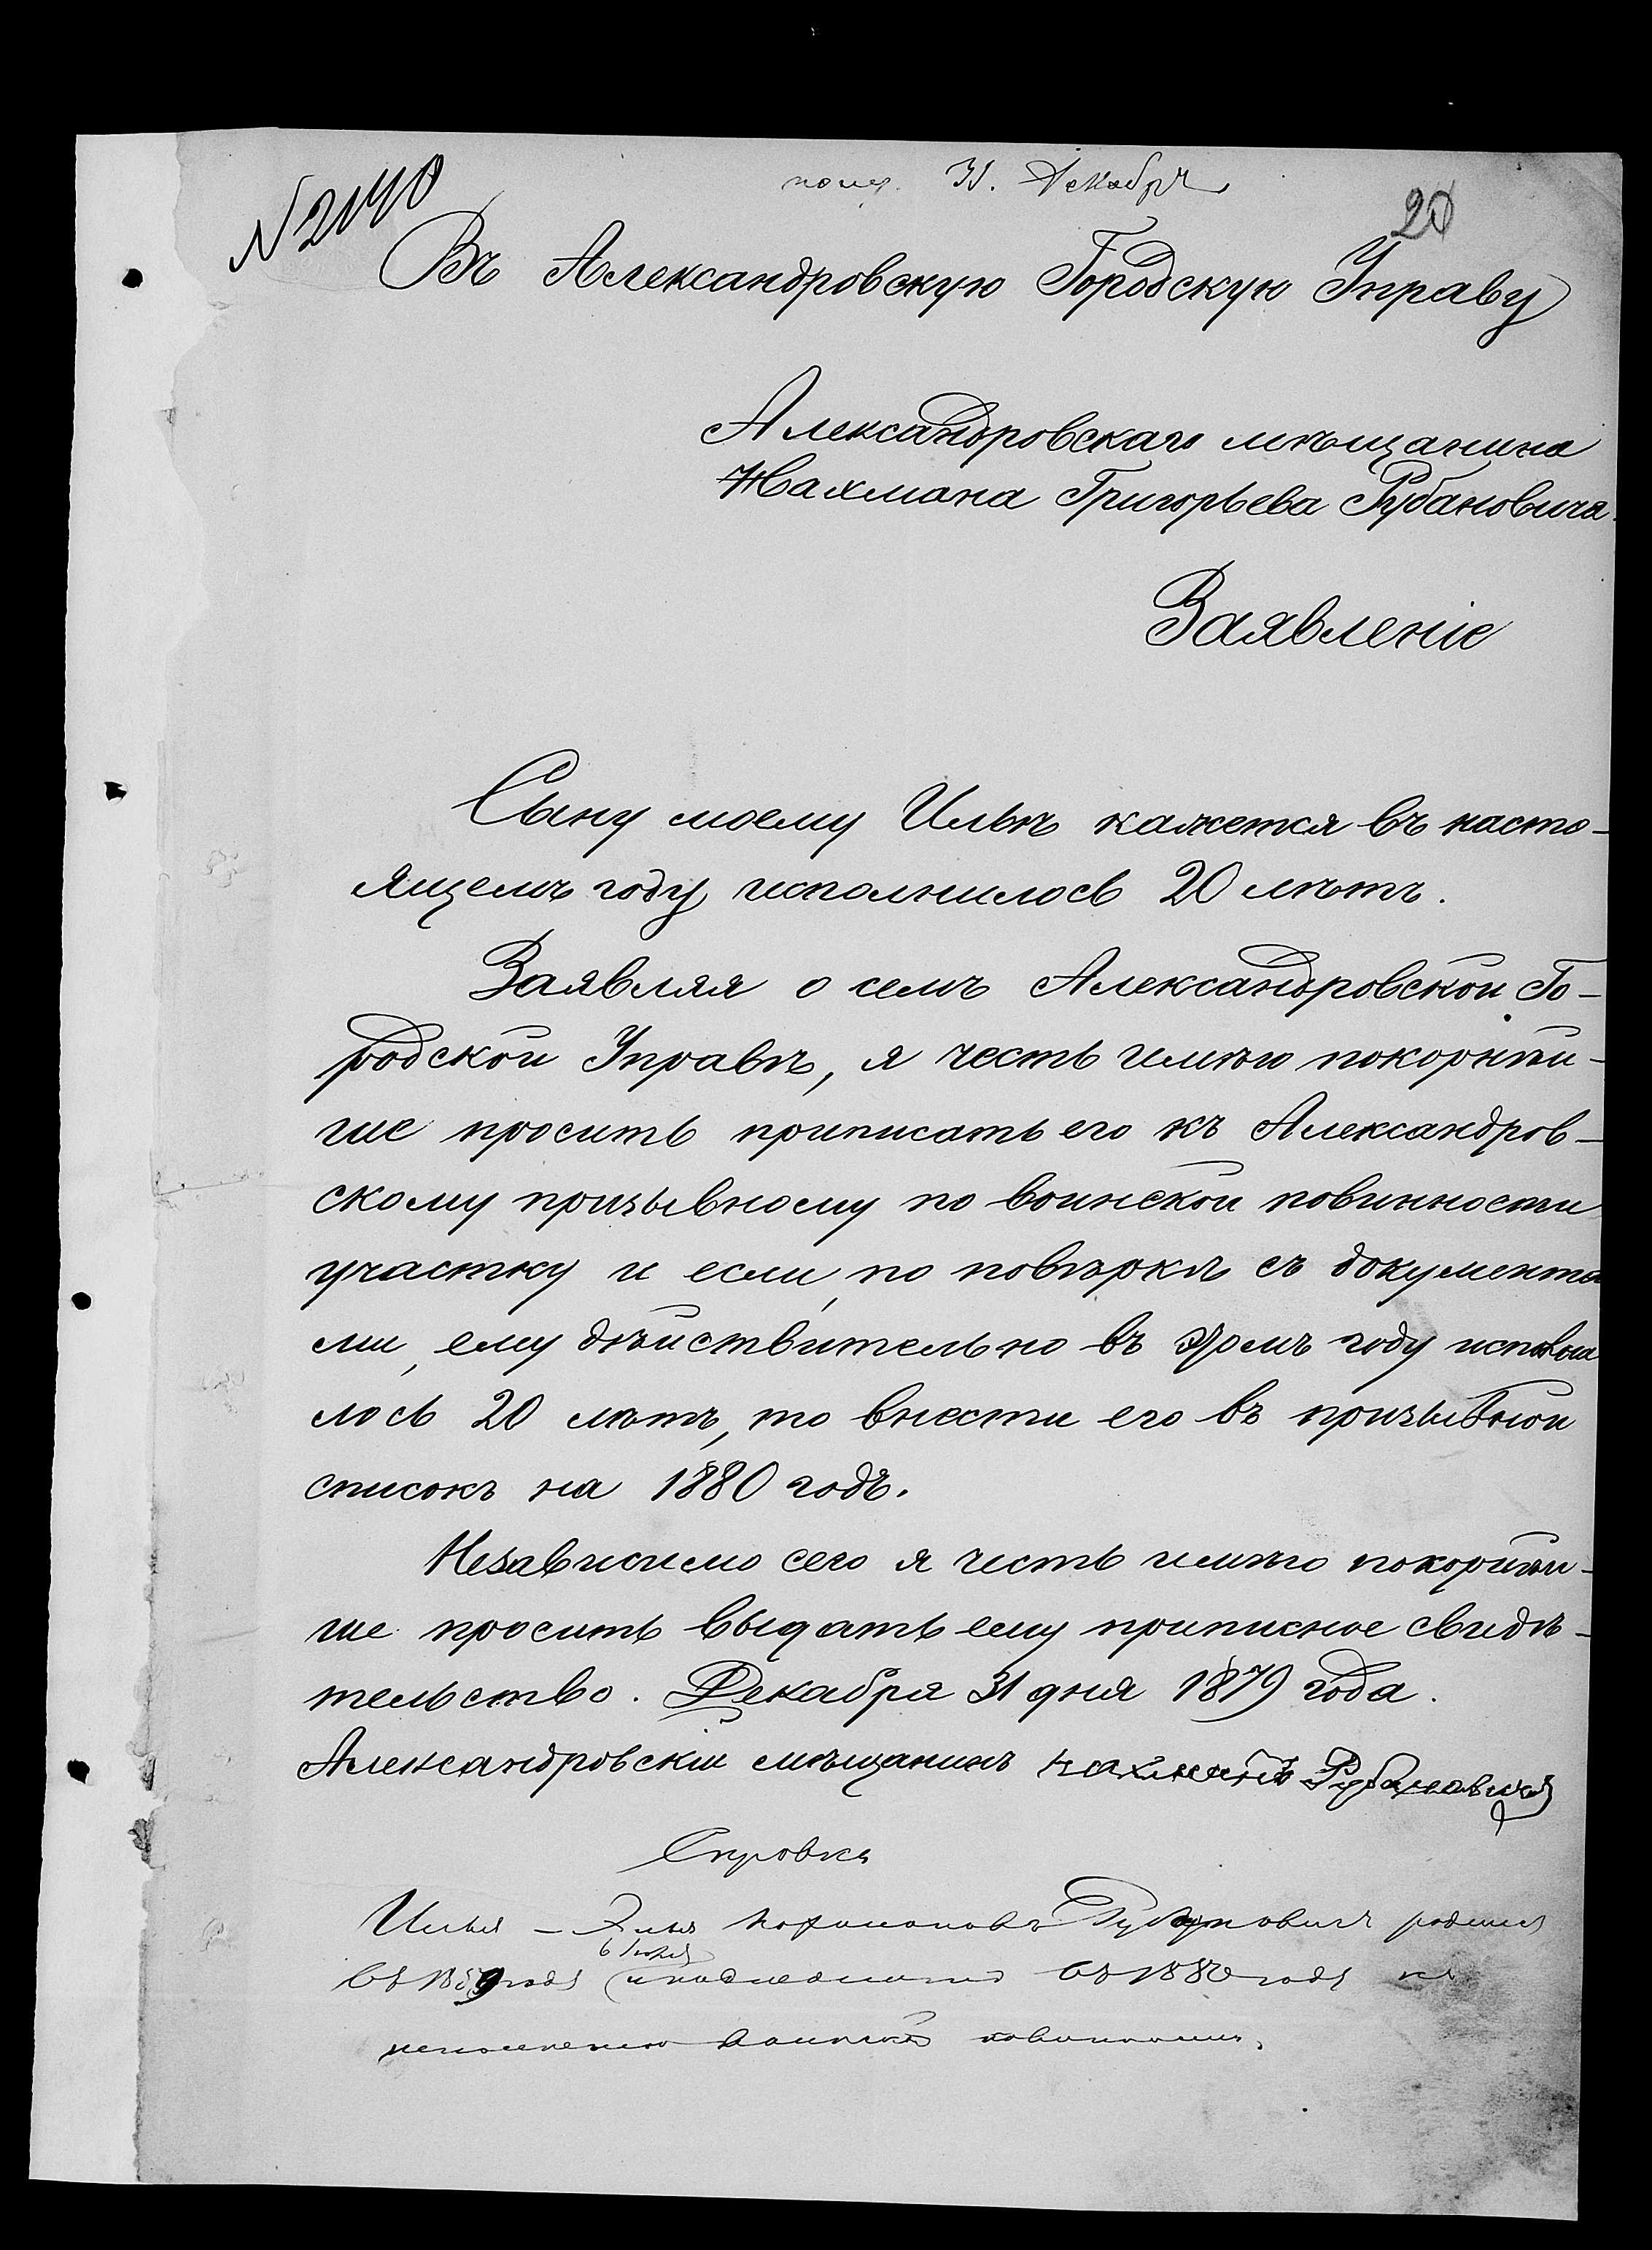 получ. 31. Декабря
20
№ 2140
Въ Александровскую Городскую Управу
Александровскаго мѣщанина
Нахмана Григорьева Рубановича.
Заявленіе
Сыну моему Ильѣ кажется въ насто-
ящемъ году исполнилось 20 лѣтъ.
Заявляя о семъ Александровской Го-
родской Управѣ, я честь имѣю покорнѣй-
ше просить приписать его къ Александров-
скому призывному по воинской повинности
участку и если, по повѣркѣ съ документа
ми, ему дѣйствительно въ этомъ году исполни
лось 20 лѣтъ, то внести его въ призывной
списокъ на 1880 годъ.
Независимо сего я честь имѣю покорнѣй-
ше просить выдать ему приписное свидѣ-
тельство. Декабря 31 дня 1879 года.
Александровскій мѣщанинъ Нахманъ Рубановичъ
Справка
Илья – Элья Нахмановъ Рубановичъ родился
въ 1859 году и подлежитъ въ 1880 году къ
исполненію воинской повинности.